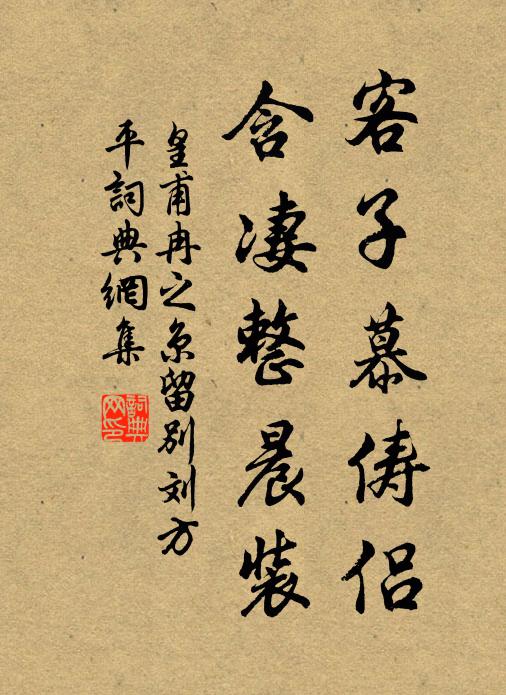 客子慕俦侣
含凄整晨装
皇甫冉之京留别刘方
平詞典網集
詞典
网印